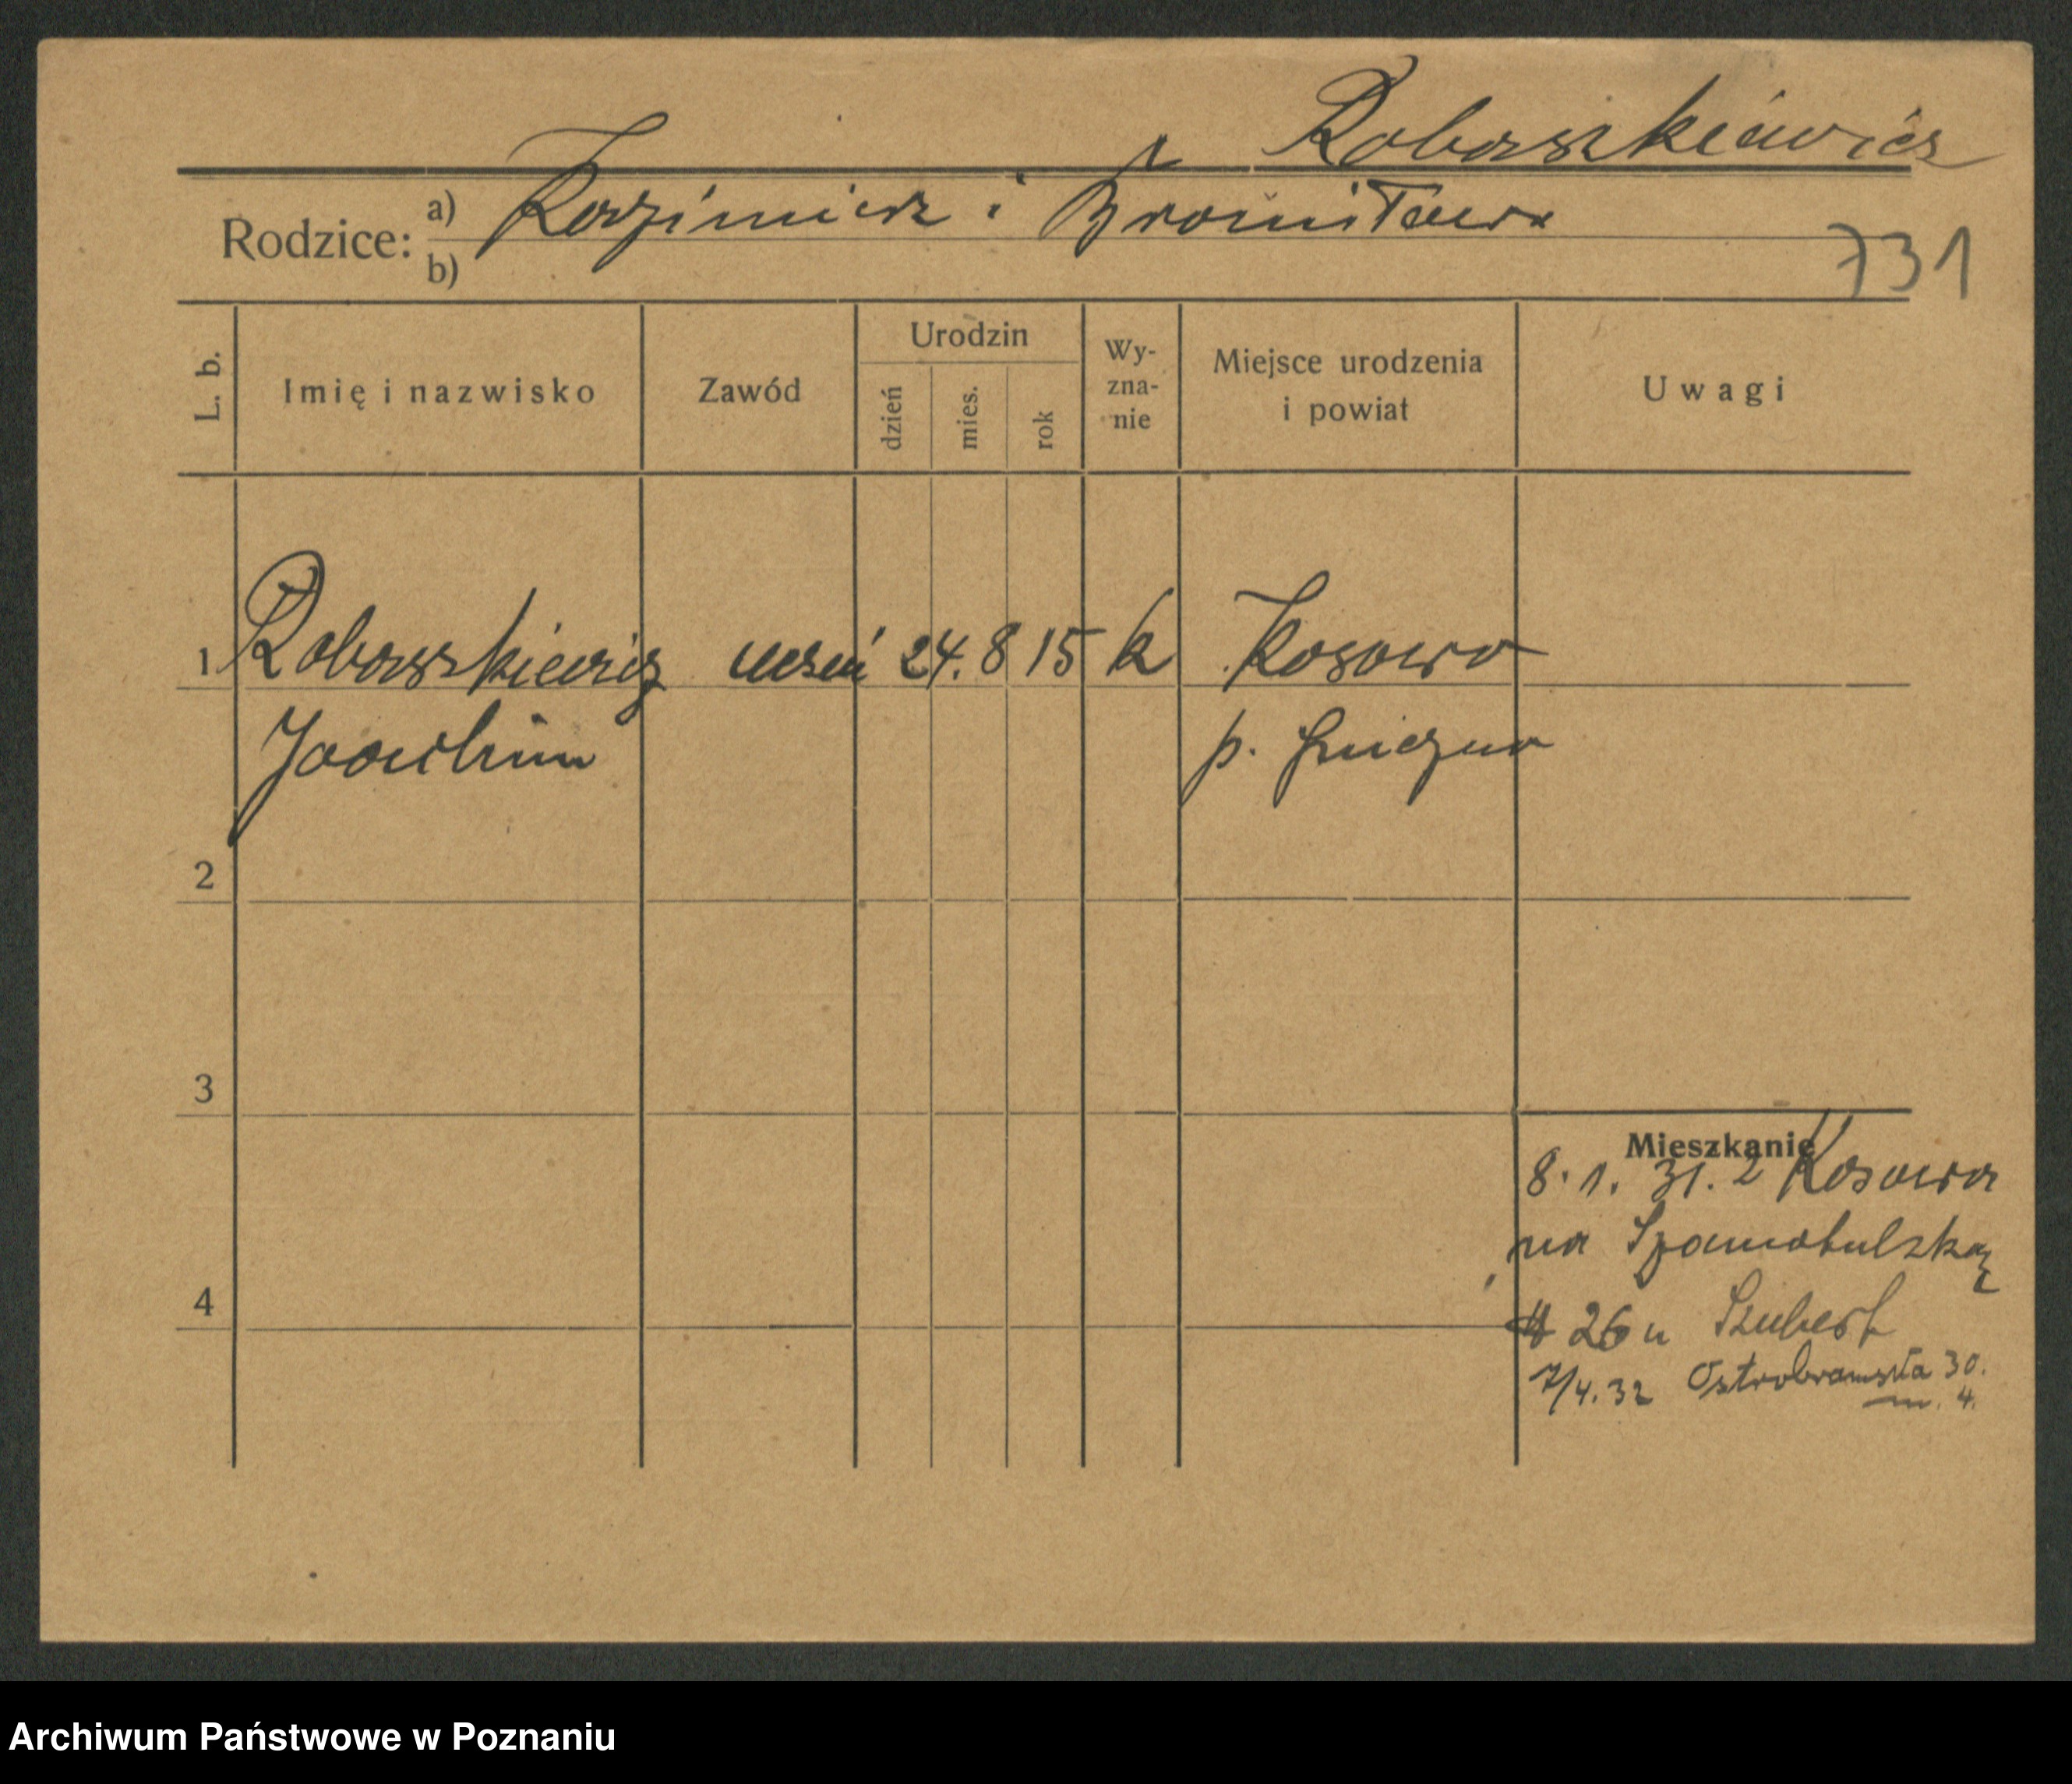 Robaszkiewicz
Rodzice: a) Kazimierz i Bronisława
b)
731
L. b. Imię i nazwisko Zawód Urodzin dzień mies. rok Wy-zna-nie Miejsce urodzenia i powiat Uwagi
1 Robaszkiewicz uczeń 24. 8 15 k Kosowo
Joachim p. Gniezno
2
3
Mieszkanie
8. 1. 31. z Kosowa
na Szamotulską
4
26 u Szubert
7/4. 32 Ostrobramska 30.
m. 4.
Archiwum Państwowe w Poznaniu